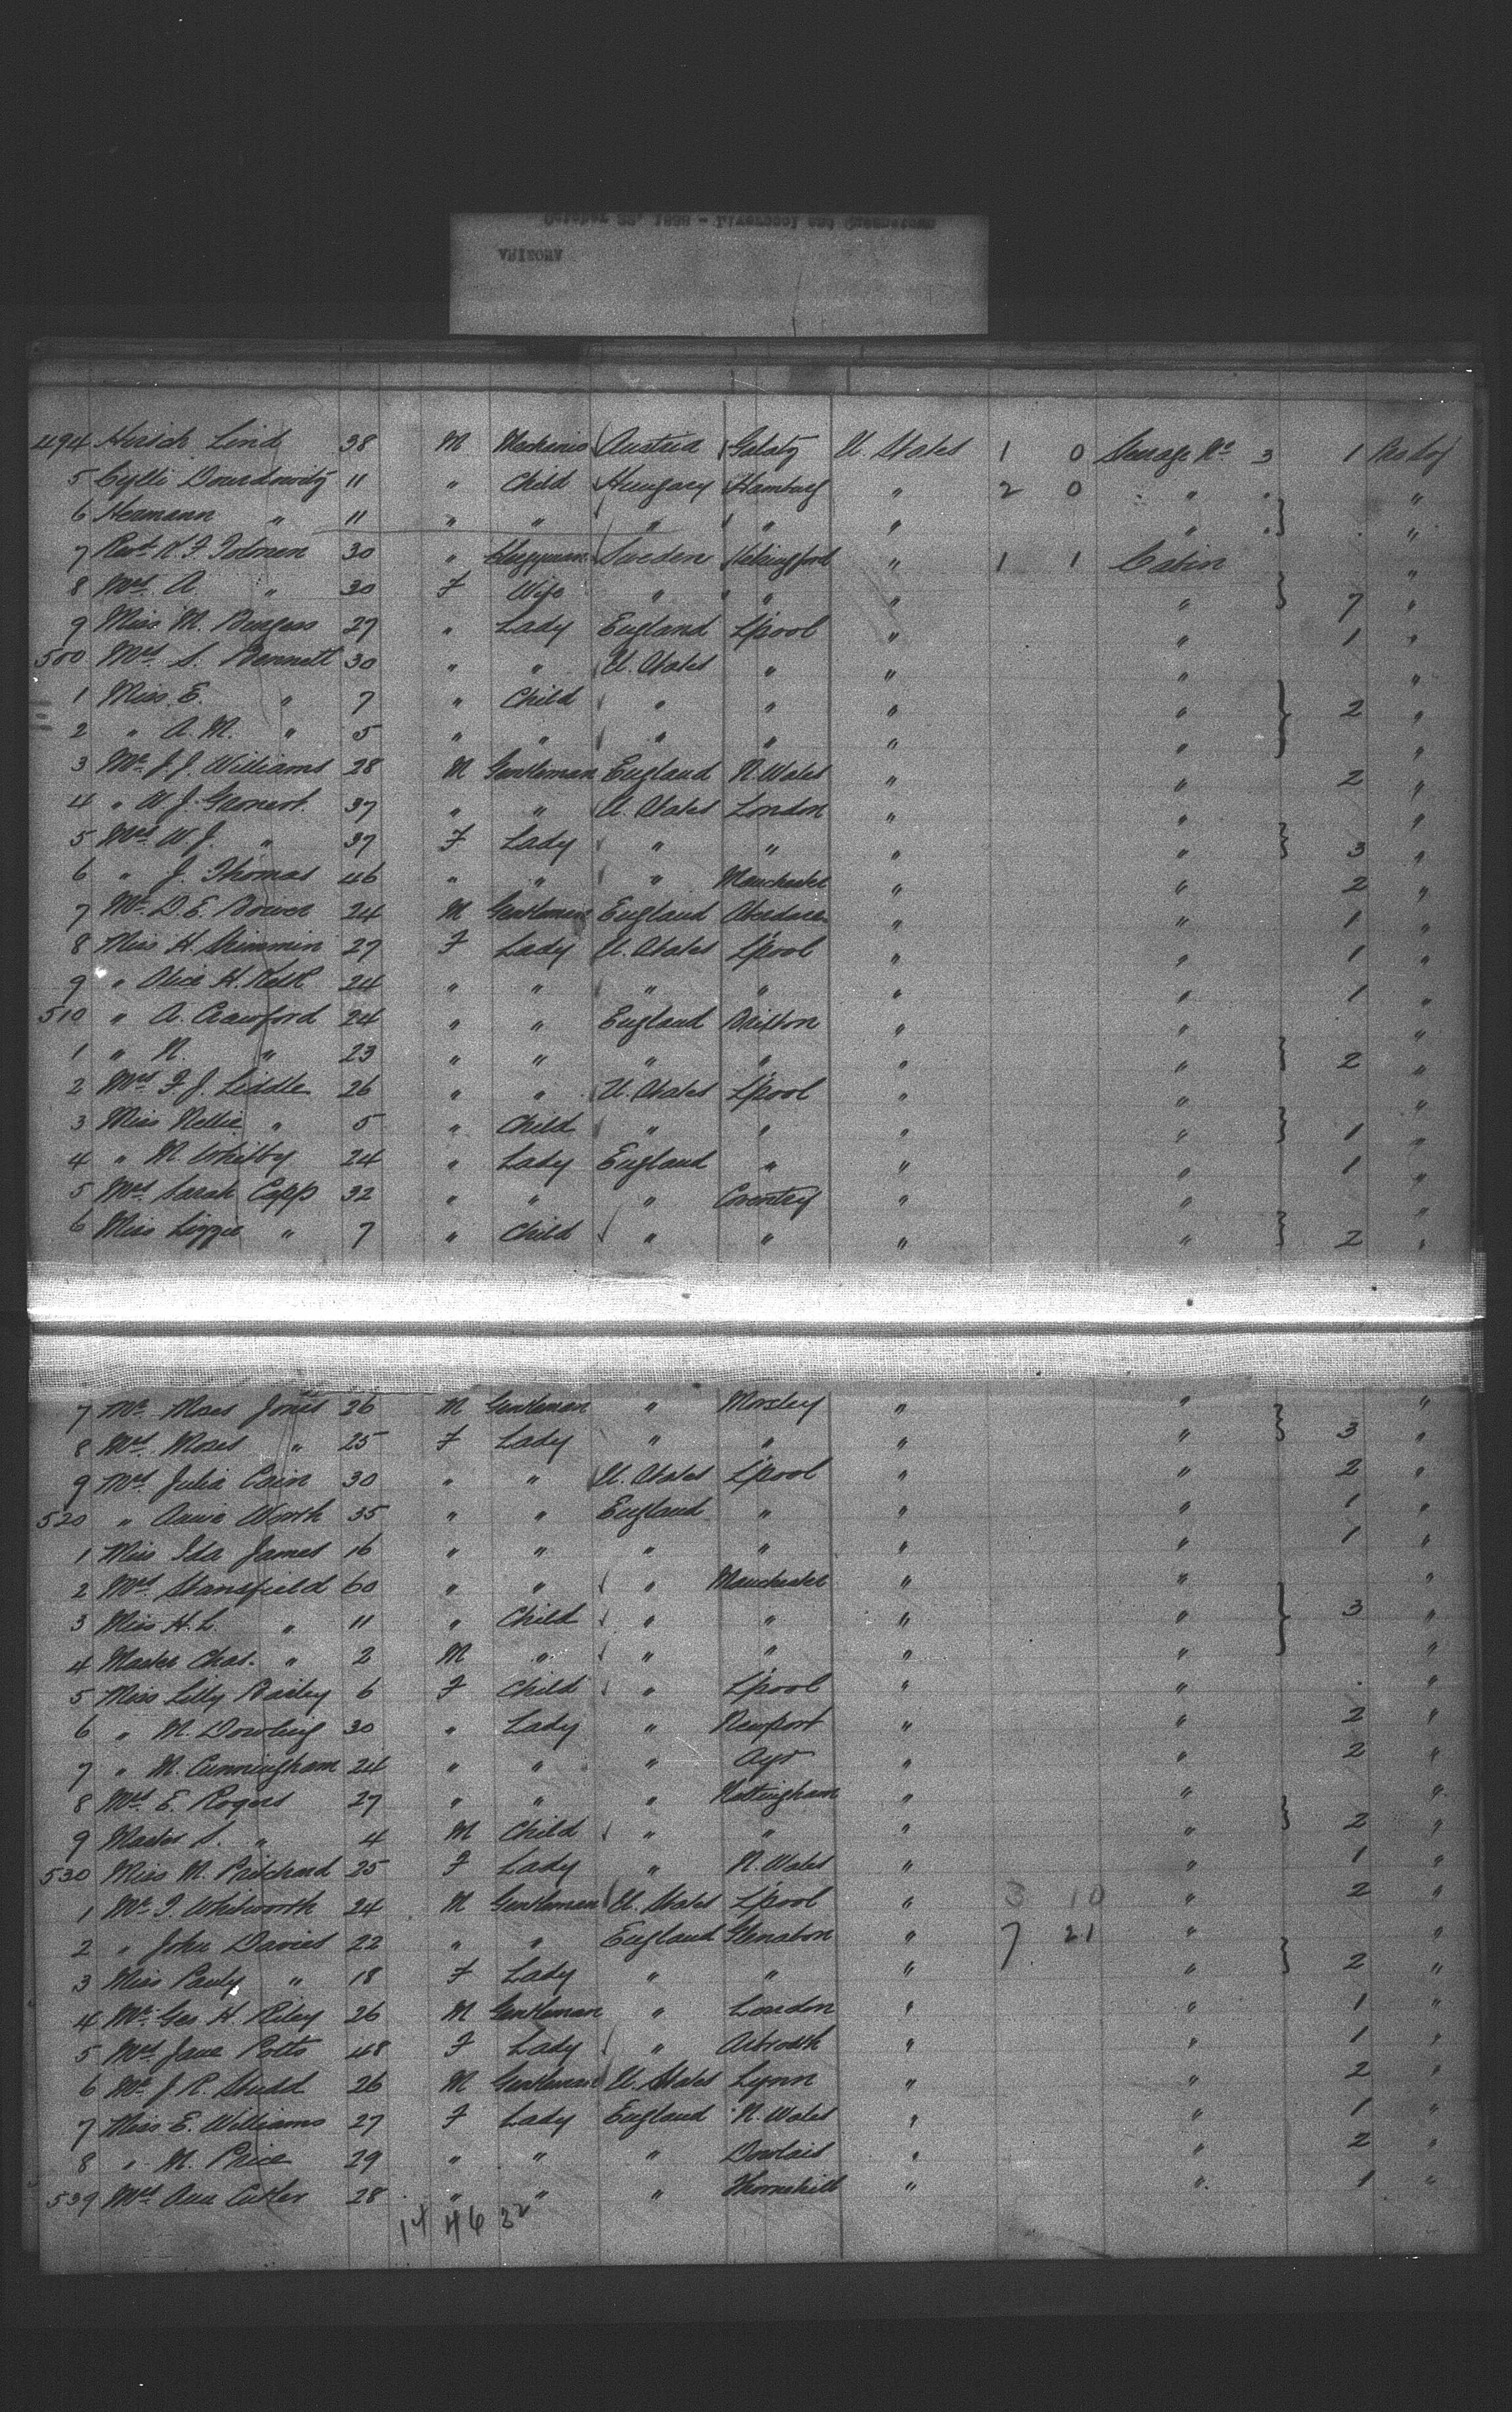 October 22, 1888 - Liverpool and Queenstown
ARIZONA
494 Hersch Lind 38 M Mechanic Austria Galatz U. States 1 0 Steerage No 3 1
5 11 " Child Hungary Hamburg " 2 0 " " "
6 Hermann " 11 " " " " " " "
7 Revd K. F. 30 " Clergyman Sweden Helsingford " 1 1 Cabin "
8 Mrs A. " 30 F Wife " " " " 7 "
9 Miss M. Burgess 27 " Lady England L'pool " " 1 "
500 Mrs S. Bennett 30 " " U. States " " " "
1 Miss E. " 7 " Child " " " " 2 "
2 " A. M. " 5 " " " " " " "
3 Mr J. J. Williams 28 M Gentleman England N. Wales " " 2 "
4 " W. J. 37 " " U. States London " " "
5 Mrs W. J. " 37 F Lady " " " " 3 "
6 " J. Thomas 46 " " " Manchester " " 2 "
7 Mr D. E. Bower 24 M Gentleman England Aberdare " " 1 "
8 Miss H. Skimmin 27 F Lady U. States L'pool " " 1 "
9 " Alice H. Kelk 24 " " " " " " 1 "
510 " A. Crawford 24 " " England Brixton " " "
1 " N. " 23 " " " " " " 2 "
2 Mrs F. J. Liddle 26 " " U. States L'pool " " "
3 Miss Nellie " 5 " Child " " " " 1 "
4 " M. Whitby 24 " Lady England " " " 1 "
5 Mrs Sarah Capp 32 " " " Coventry " " "
6 Miss Lizzie " 7 " Child " " " " 2 "
7 Mr Moses Jones 26 M Gentleman " Morley " " "
8 Mrs Moses " 25 F Lady " " " " 3 "
9 Mrs Julia Cain 30 " " U. States L'pool " " 2 "
520 " Annie Worth 35 " " England " " " 1 "
1 Miss Ida James 16 " " " " " " 1 "
2 Mrs Stansfield 60 " " " Manchester " " "
3 Miss H. L. " 11 " Child " " " " 3 "
4 Master Chas. " 2 M " " " " " "
5 Miss Lilly Bailey 6 F Child " L'pool " " "
6 " M. Dowling 30 " Lady " Newport " " 2 "
7 " M. Cunningham 24 " " " Ayr " " 2 "
8 Mrs E. Rogers 27 " " " Nottingham " " "
9 Master S. " 4 M Child " " " " 2 "
530 Miss M. Pritchard 25 F Lady " N. Wales " " 1 "
1 Mr T. Whitworth 24 M Gentleman U. States L'pool " 3 10 " 2 "
2 " John Davies 22 " " England " 7 21 " "
3 Miss Pauly " 18 F Lady " " " " 2 "
4 Mr Geo H. Riley 26 M Gentleman " London " " 1 "
5 Mrs Jane Potts 48 F Lady " Arbroath " " 1 "
6 Mr J. R. Studd 26 M Gentleman U. States Lynn " " 2 "
7 Miss E. Williams 27 F Lady England N. Wales " " 1 "
8 " M. Price 29 " " " Dowlais " " 2 "
539 Mrs Ann Cutler 28 " " " Thornhill " " 1 "
14 46 32